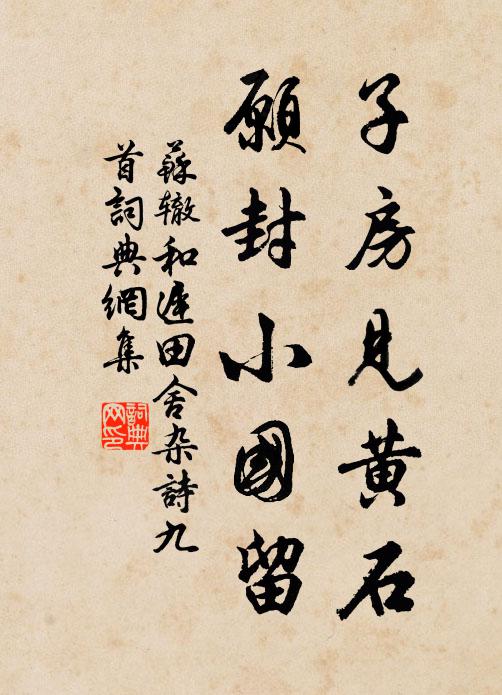 子房見黄石
願封小國留
蘇辙和遲田舍杂詩九
首詞典網集
詞典
网印